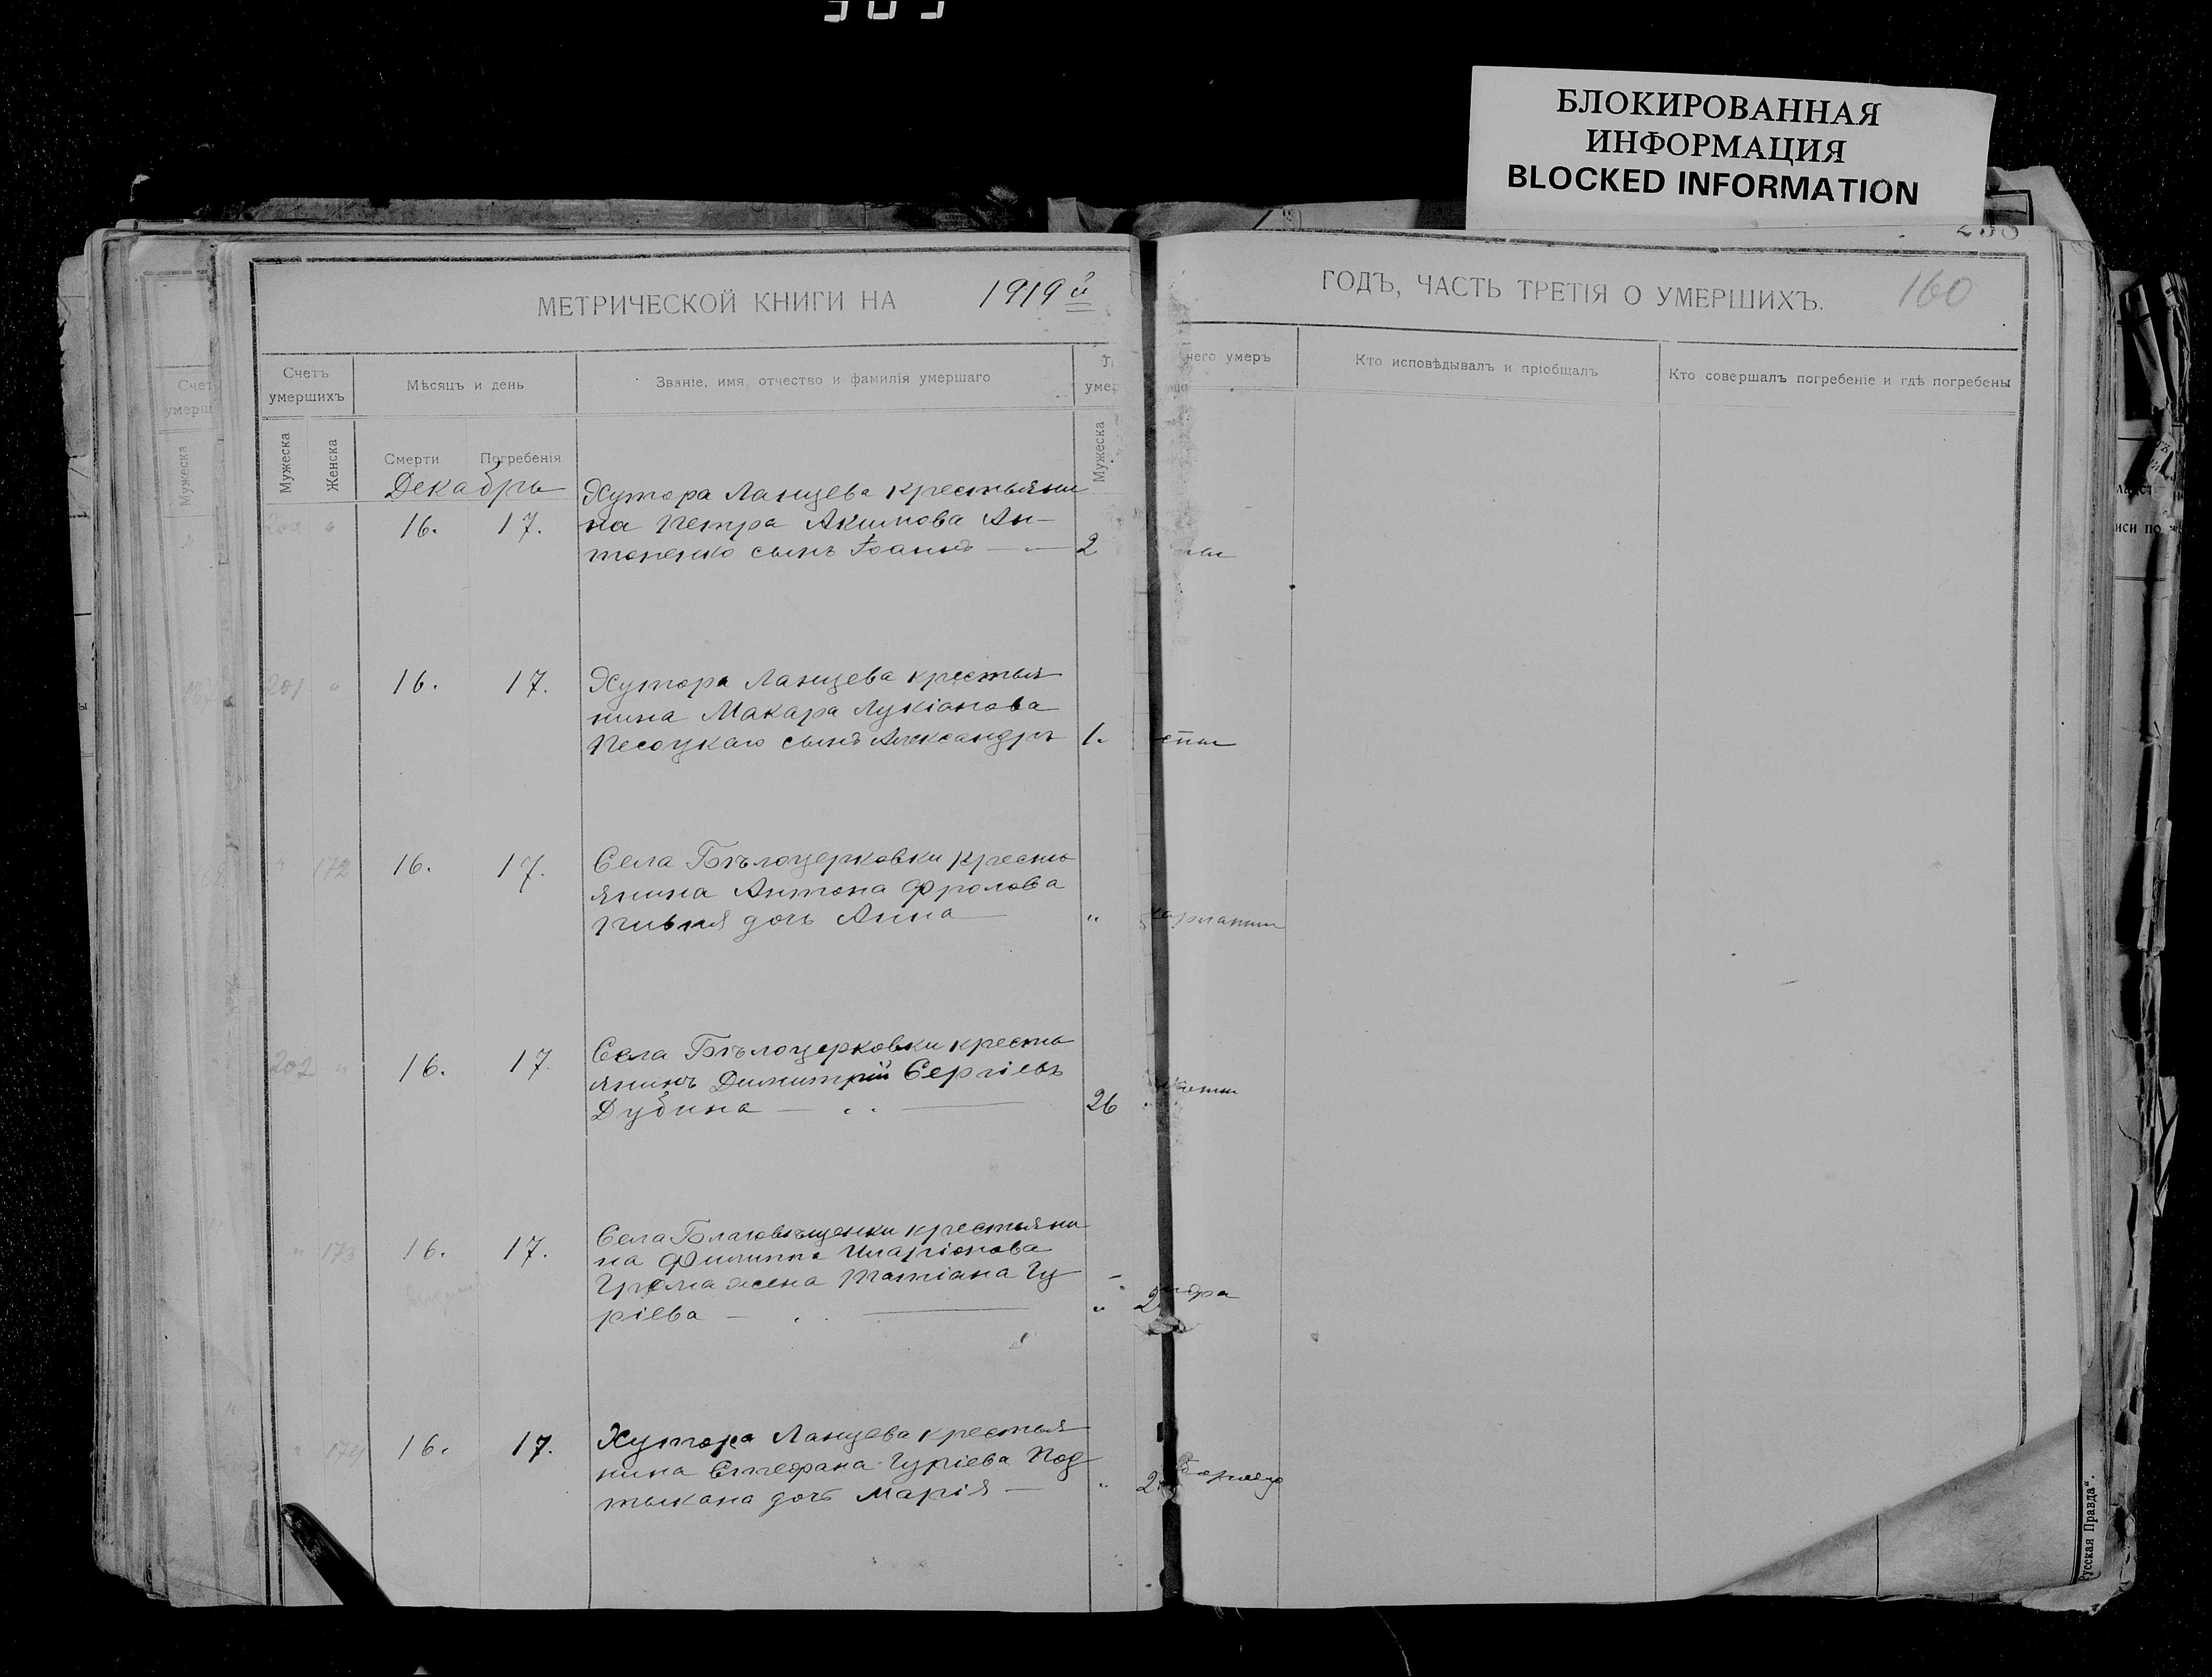 БЛОКИРОВАННАЯ
ИНФОРМАЦИЯ
BLOCKED INFORMATION
МЕТРИЧЕСКОЙ КНИГИ НА 1919й
ГОДЪ, ЧАСТЬ ТРЕТІЯ О УМЕРШИХЪ. 160
Счетъ
умершихъ
Мѣсяцъ и день
Званіе, имя, отчество и фамилія умершаго
Мужеска
Женска
Смерти
Погребенія
Мужеска
чего умеръ
Кто исповѣдывалъ и пріобщалъ
Кто совершалъ погребеніе и гдѣ погребены
Декабрь
200 " 16. 17.
Хутора Ланцева крестьяни
на Петра Акимова Ан-
тоненко сынъ Іоаннъ 2
201 " 16. 17.
Хутора Ланцева крестья
нина Макара Лукіанова
Песоцкаго сынъ Александръ 1.
" 172 16. 17.
Села Бѣлоцерковки кресть
янина Антона Фролова
Пивня дочь Анна "
202 " 16. 17.
Села Бѣлоцерковки кресть
янинъ Димитрій Сергіевъ
Дубина 26
" 173 16. 17.
Села Благовѣщенки крестьяни
на Филиппа Иларіонова
жена Татіана Гу
ріева " 2
" 174 16. 17.
Хутора Ланцева крестья
нина Стефана Гуріева Под
тыкана дочь Марія " 2
Русская Правда".